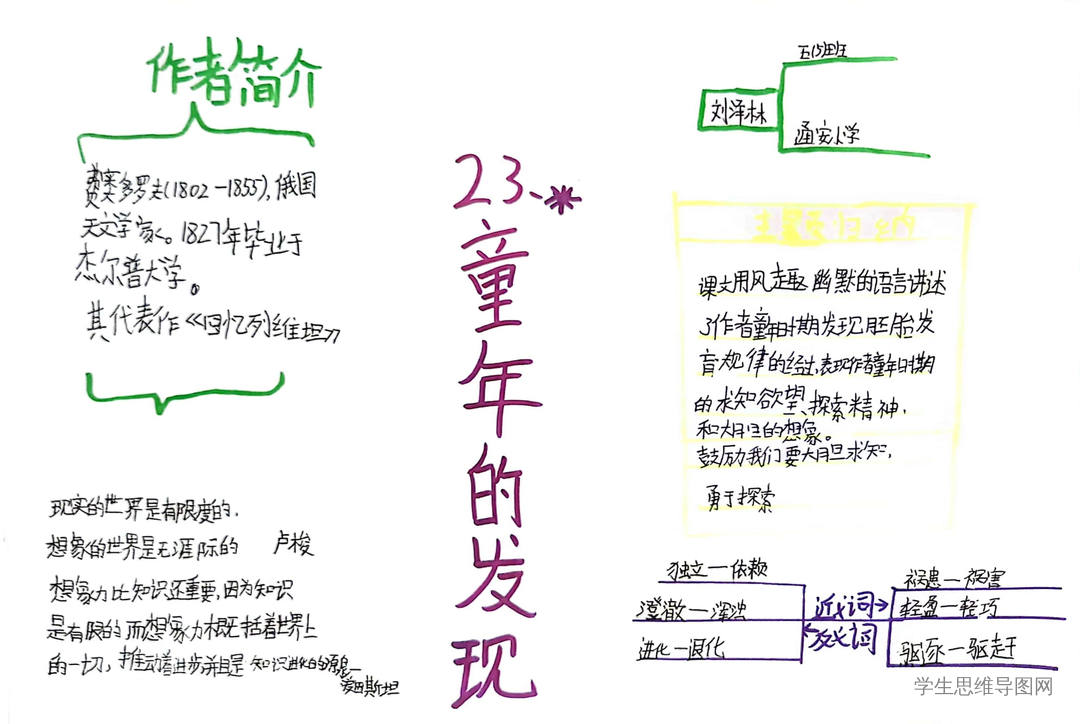 作者简介
费奥多罗夫(1802-1855),俄国
天文学家。1827年毕业于
杰尔普大学。
其代表作《回忆列维坦》
现实的世界是有限度的.
想象的世界是无涯际的 卢梭
想象力比知识还重要,因为知识
是有限的而想象力概括着世界上
的一切,推动着进步并且是知识进化的源泉—
爱因斯坦
23.*
童年的发现
刘泽林
通安小学
课文用风趣幽默的语言讲述
了作者童年时期发现胚胎发
育规律的经过,表现作者童年时期
的求知欲望、探索精神,
和大胆的想象。
鼓励我们要大胆求知,
勇于探索
独立—依赖
澄澈—浑浊
进化—退化
近义词
反义词
祸患—祸害
轻盈—轻巧
驱逐—驱赶
学生思维导图网